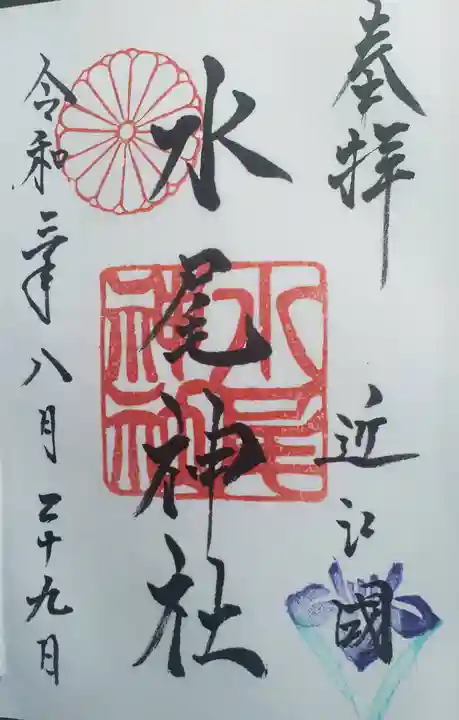 奉拝 近江國
水尾神社
水尾神社
令和三年八月二十九日